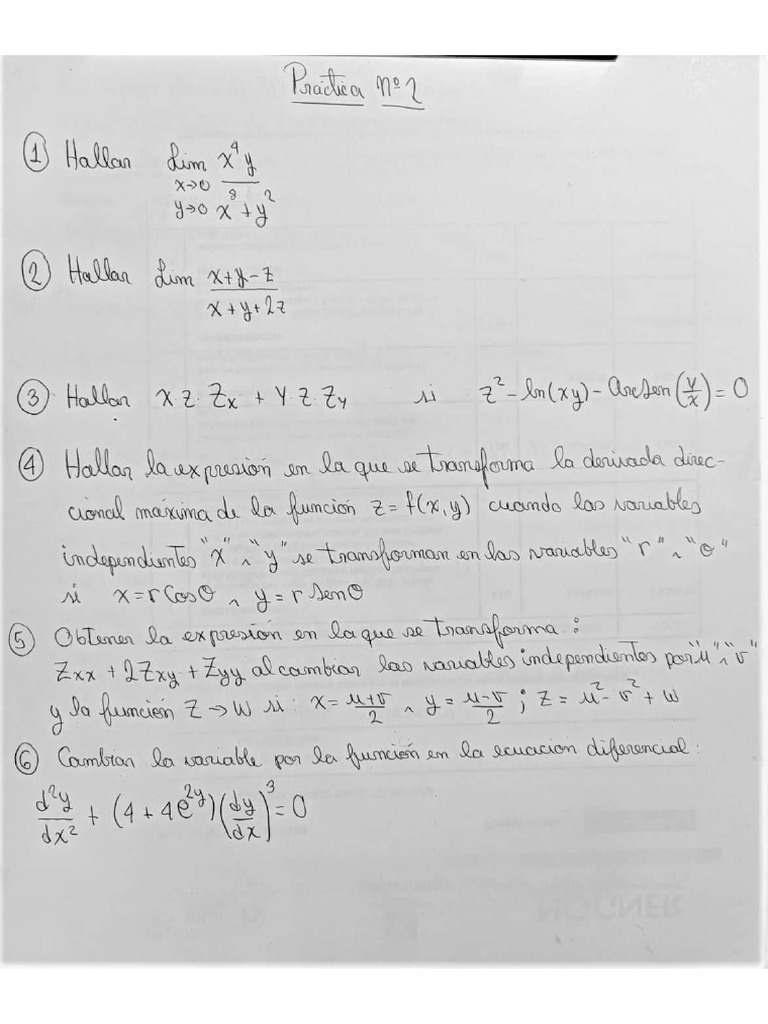 Práctica Nº2
① Hallar Lim x→0 y→0 x⁴y / x⁸ + y²
② Hallar Lim x+y-z / x+y+2z
③ Hallar x.z.Zx + y.z.Zy si z² - ln(xy) - arcsen(y/x) = 0
④ Hallar la expresión en la que se transforma la derivada direc-
cional máxima de la función z = f(x,y) cuando las variables
independientes "x" ∧ "y" se transforman en las variables "r" ∧ "θ"
si x = r Cosθ ∧ y = r Senθ
⑤ Obtener la expresión en la que se transforma:
Zxx + 2Zxy + Zyy al cambiar las variables independientes por "u" ∧ "v"
y la función Z → W si: x = u+v/2 ∧ y = u-v/2 ; z = u² - v² + w
⑥ Cambiar la variable por la función en la ecuación diferencial:
d²y/dx² + (4 + 4e^2y)(dy/dx)³ = 0
HOGNER